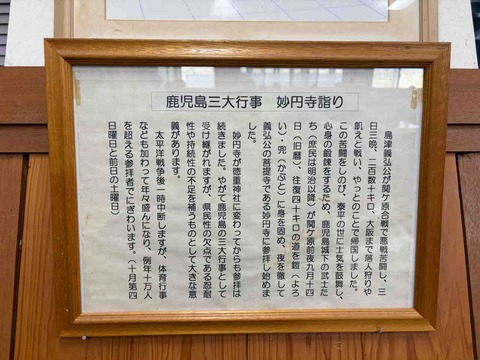 鹿児島三大行事　妙円寺詣り
島津義弘公が関ケ原合戦で悪戦苦闘し、三
日三晩、二百数十キロ、大阪まで落人狩りや
飢えと戦い、やっとのことで帰国しました。
この苦闘をしのび、泰平の世に士気を鼓舞し、
心身の鍛錬をするため、鹿児島城下の武士た
ち（庶民は明治以降）が関ケ原前夜九月十四
日（旧暦）、往復四十キロの道を鎧（よろ
い）・兜（かぶと）に身を固め、夜を徹して
義弘公の菩提寺である妙円寺に参拝し始めま
した。
妙円寺が徳重神社に変わってからも参拝は
続きました。やがて鹿児島の三大行事として
受け継がれますが、県民性の欠点である忍耐
性や持続性の不足を補うものとして大きな意
義があります。
太平洋戦争後一時中断しますが、体育行事
なども加わって年々盛んになり、例年十万人
を超える参拝者でにぎわいます。（十月第四
日曜日と前日の土曜日）